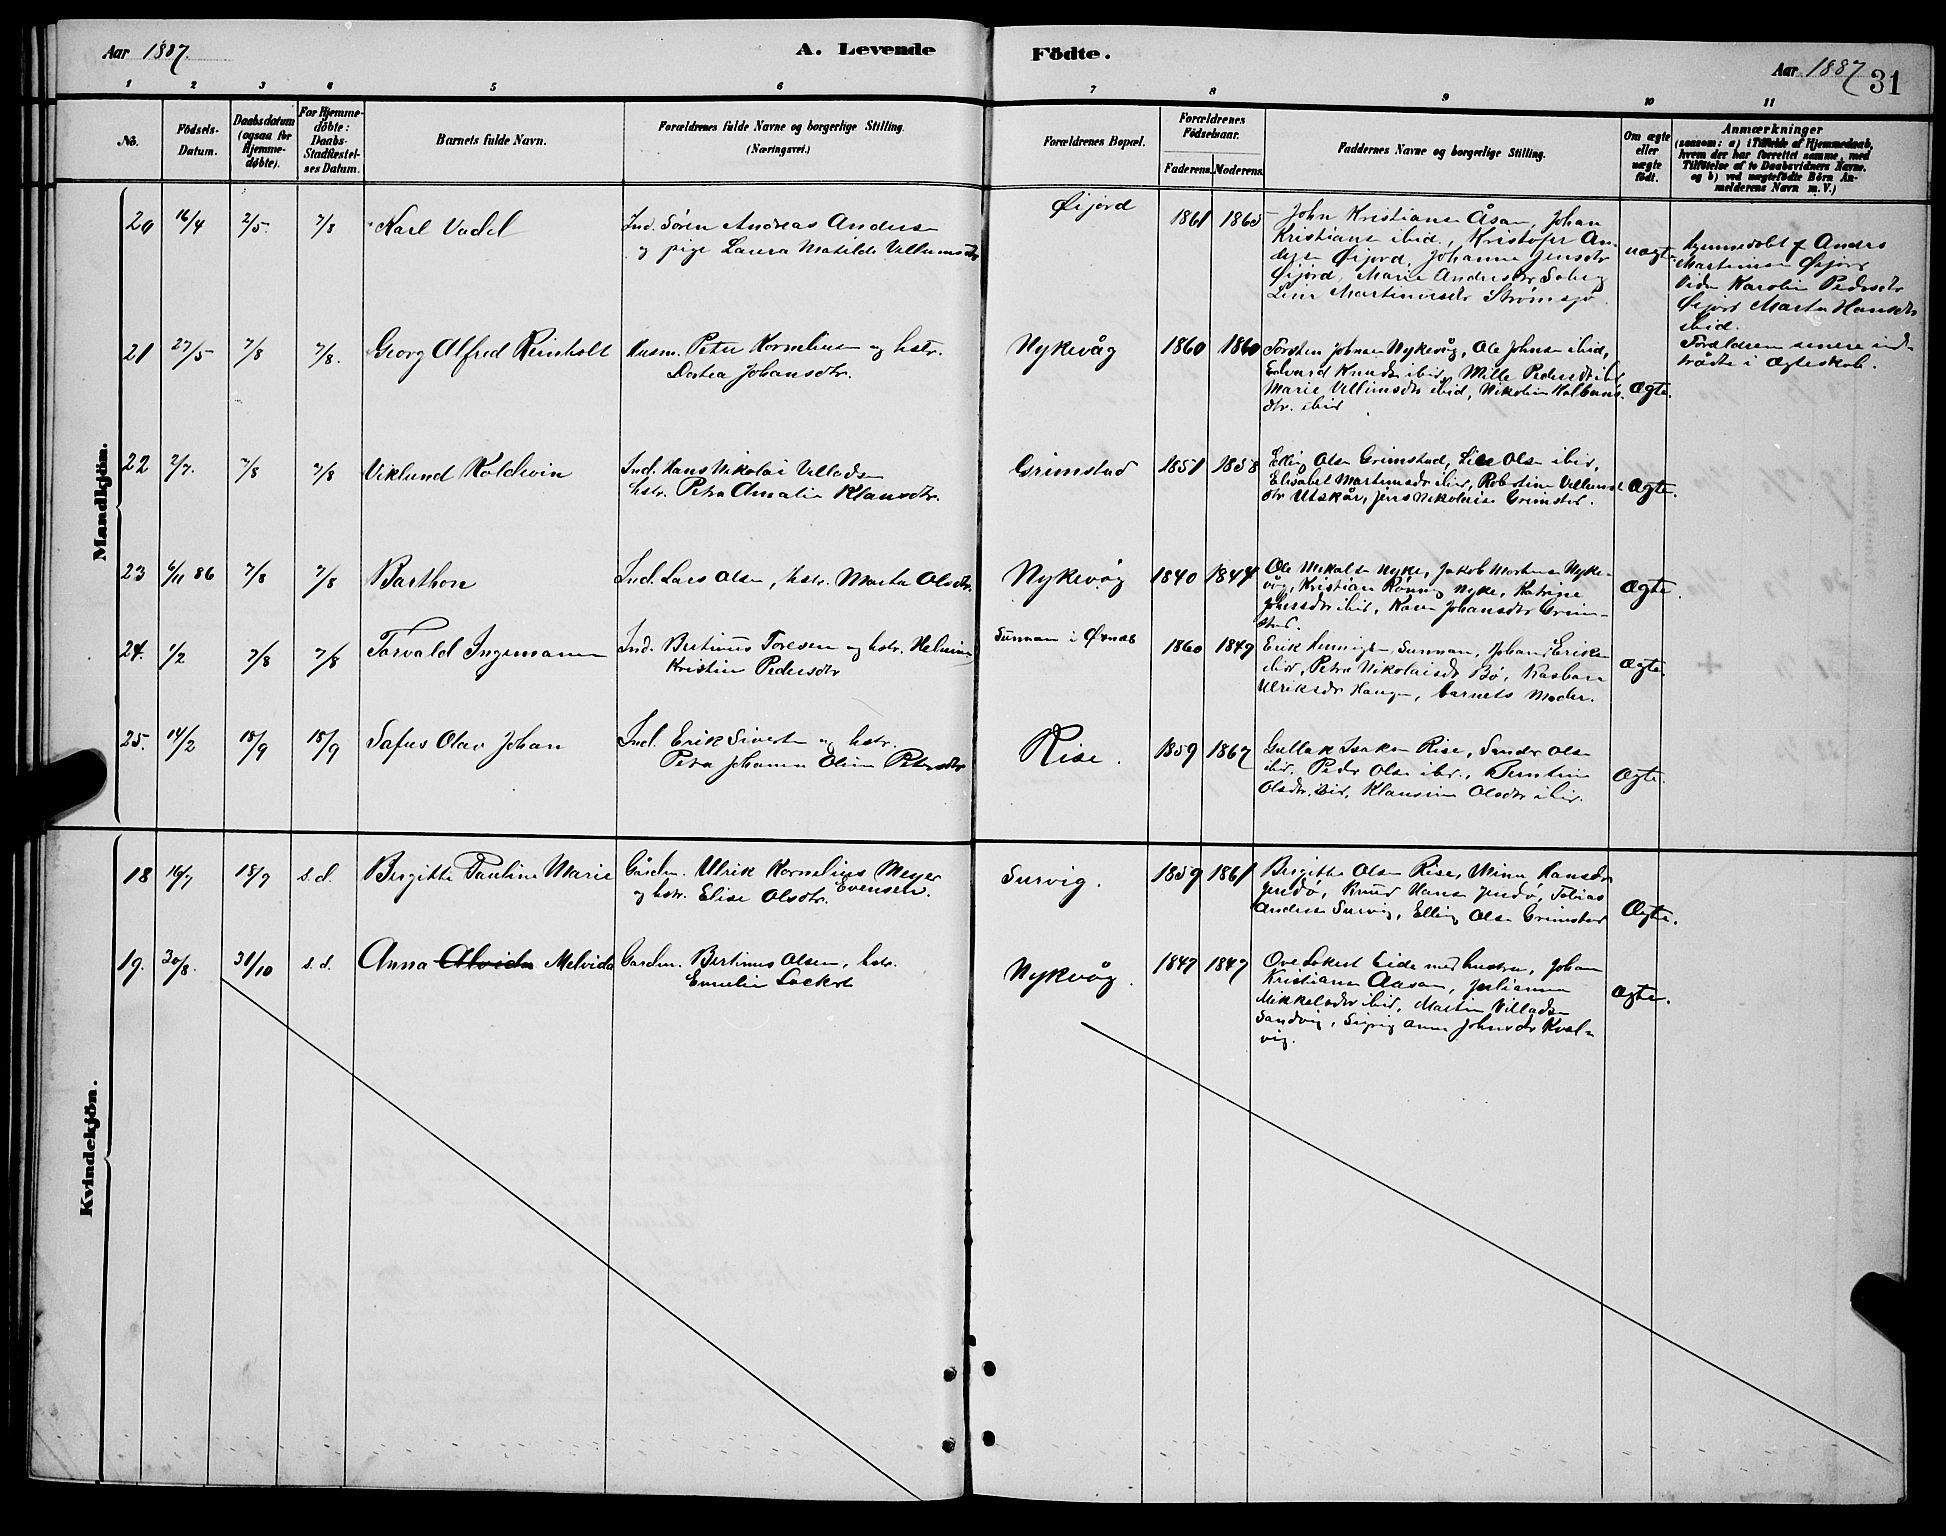 Aar 1887.
A. Levende
Födte.
Aar 1887
31
1 2 3 4 5 6 7 8 9 10 11
No.
Födsels-Datum.
Daabsdatum (ogsaa for Hjemmedöbte).
For Hjemmedöbte: Daabs-Stadfæstelses Datum.
Barnets fulde Navn.
Forældrenes fulde Navne og borgerlige Stilling.
(Næringsvei.)
Forældrenes Bopæl.
Forældrenes Födselsaar.
Faderens. Moderens.
Faddernes Navne og borgerlige Stilling.
Om ægte eller uægte födt.
Anmærkninger
(saasom: a) i Tilfælde af Hjemmedaab, hvem der har forrettet samme, med Tilföielse af to Daabsvidners Navne, og b) ved uægtefödte Börn Anmelderens Navn m. V.)
Mandkjön.
20 16/4 2/5. 7/8 Karl Vadel
Ind. Sören Andreas Anders
og pige Laura Matilde Villumsdtr
Øijord
1861 1865
John Kristianse Åsan, Johan
Kristianse ibid., Kristofer An-
Øijord, Johanna Jensdtr
Øijord, Marie Andersdtr
Martinusdtr Strømsjø
uægte
hjemmedøbt af Anders
Martinsen Øijord
Karolin Pedersdtr
Øijord Marta Hansdtr
ibid.
Forældrene senere ind-
trådte i ægteskab.
21 27/5 7/8 7/8. Georg Alfred Reinholt
Husm. Peter Korneliusen og hstr.
Dortea Johansdtr.
Nykevåg
1860 1860
Torsten Johnsen Nykevåg, Ole Johnsen ibid,
Edvard Knuds ibid, Mille Pedersdtr ibid
Marie Villumsdtr ibid, Nikolin
dtr. ibid
Ægte.
22 2/7. 7/8 7/8 Viklund Koldevin
Ind. Hans Nikolai Villads
hstr. Petra Amalie Klausdtr.
Grimstad
1851 1858
Elling Olsen Grimstad, Olsn ibid,
Elisabet Martinsdtr ibid, Robertine Villums
dtr Utskår, Jens Nikolaisen Grimstad.
Ægte.
23 6/11 86 7/8 7/8 Barthon
Ind. Lars Olsen, hstr. Marta Olsdtr.
Nykevåg
1840 1844
Ole Mikalsen Nyke, Jakob Mortensen Nyke-
våg, Kristian Rønnig Nyke, Katrine
Johnsdtr ibid, Karen Johansdtr Grim-
stad.
Ægte.
24. 1/2 7/8 7/8 Torvald Ingemann
Ind. Bertinus Toresen og hstr. Helmine
Kristine Pedersdtr
Sunnan i Øxnes
1860 1849
Erik Henningsen Sunnan, Johan Eriksen
ibid, Petra Nikolaisdtr Bø,
Ulriksdtr Haugen, barnets Moder.
Ægte.
25. 14/2 18/9 18/9 Safus Olav Johan
Ind. Erik Sivertsen og hstr.
Petra Johanna Oline Petersdtr
Rise.
1859 1867
Gullak Isaksen Rise, Sander Olsen
ibid, Peder Olsen ibid.,
Olsdtr ibid, Klausine Olsdtr ibid.
Ægte.
Kvindekjön.
18 16/7 18/9 s.d. Birgitte Pauline Marie
Gårdm. Ulrik Kornelius Meyer
og hstr. Elise Olsdtr. Evensen.
Survig.
1859 1861
Birgitte Olsen Rise, Mina Hansdtr
Knud Hansen Tobias
Andersen Survig, Elling Olsen Grimstad
Ægte.
19. 30/8. 31/10 s.d. Anna Alvida Melvida
Gardm. Bertinus Olsen, hstr.
Emelie Lockert
Nykvåg.
1847 1847
Ove Lokert Eide med hustru, Johan
Kristiansen Aasan, Julianna
Mikkelsdtr ibid, Martin Villadsen
Sandvig, Anna Johnsdtr Kval-
vig.
Ægte.